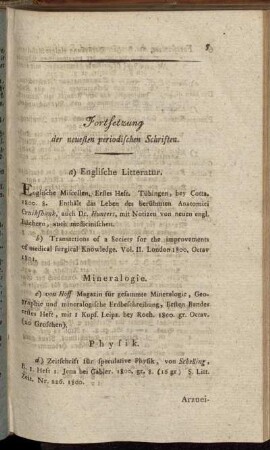 Fortsetzung
der neuesten periodischen Schriften.
a) Englische Litteratur.
Englische Miscellen, Erstes Heft. Tübingen, bey Cotta.
1800. 8. Enthält das Leben des berühmten Anatomici
Cruikshank, auch Dr. Hunters, mit Notizen von neuen engl.
Büchern, auch medicinischen.
b) Transactions of a Society for the improvements
of medical surgical Knowledge. Vol. II. London 1800. Octav
Mineralogie.
a) von Hoff Magazin für gesammte Mineralogie, Geo-
graphie und mineralogische Erdbeschreibung, Ersten Bandes
erstes Heft, mit 1 Kupf. Leipz. bey Roch. 1800. gr. Octav.
Groschen).
Physik.
a) Zeitschrift für speculative Physik, von Schelling,
B. I. Heft 1. Jena bey Gabler. 1800. gr. 8. (18 gr.) S. Litt.
Zeit. Nr. 1800.
Arznei-